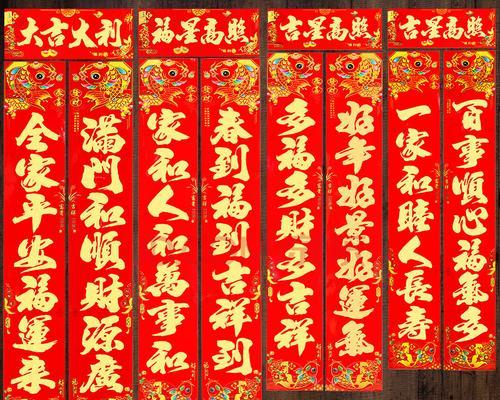 大吉大利
滿門和順財源廣
全家平安福運来
福星高照
春到福到吉祥到
家和人和萬事和
吉星高照
好年好景好運氣
多福多財多吉祥
吉星高照
百事順心福氣多
一家和睦人長壽